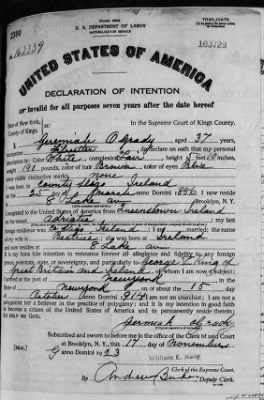 TRIPLICATE
U. S. DEPARTMENT OF LABOR
NATURALIZATION SERVICE
163339
103723
UNITED STATES OF AMERICA
DECLARATION OF INTENTION
Invalid for all purposes seven years after the date hereof
State of New York,
County of Kings,
In the Supreme Court of Kings County.
I, Jeremiah O Grady, aged 37 years,
occupation, do declare on oath that my personal
description is: Color White, complexion Fair, height 5 feet inches,
weight 190 pounds, color of hair Brown, color of eyes Blue
other visible distinctive marks None
I was born in County Sligo Ireland
on the 25 day of March, anno Domini 1886; I now reside
at 8 Lake av, Brooklyn, N. Y.
I emigrated to the United States of America from Queenstown Ireland
on the vessel; my last
foreign residence was Sligo Ireland; I am married; the name
of my wife is Beatrice; she was born at Ireland
and now resides at 8 Lake av
It is my bona fide intention to renounce forever all allegiance and fidelity to any foreign
prince, potentate, state, or sovereignty, and particularly to George V King of
Great Britain and Ireland, of whom I am now a subject;
I arrived at the port of New York, in the
State of New York, on or about the 15 day
of October, anno Domini; I am not an anarchist; I am not a
polygamist nor a believer in the practice of polygamy; and it is my intention in good faith
to become a citizen of the United States of America and to permanently reside therein:
SO HELP ME GOD.
Jeremiah O Grady
Subscribed and sworn to before me in the office of the Clerk of said Court
at Brooklyn, N. Y., this 17 day of November
anno Domini 1923
William E. Kelly
Clerk of the Supreme Court.
By Andrew, Deputy Clerk.